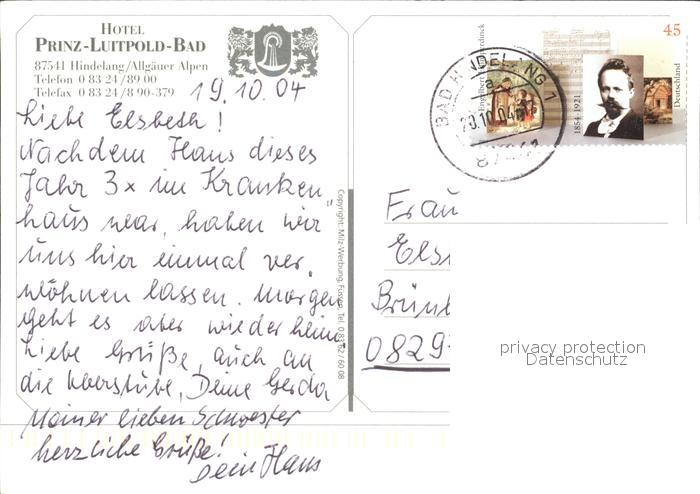 HOTEL
PRINZ-LUITPOLD-BAD
87541 Hindelang/Allgäuer Alpen
Telefon 0 83 24/89 00
Telefax 0 83 24/8 90-379
19.10.04
Liebe Elsbeth!
Nachdem Hans dieses
Jahr 3x im Kranken-
haus war, haben wir
uns hier einmal ver-
wöhnen lassen. Morgen
geht es aber wieder heim.
Liebe Grüße, auch an
die Weberstube, Deine Gerda
Meiner lieben Schwester
herzliche Grüße!
Dein Hans
Copyright: Milz-Werbung, Füssen, Tel. 0 83 62/60 08
Engelbert Humperdinck
1854-1921
45
Deutschland
BAD HINDELANG 1
20.10.04
Frau
Els
Brün
0829
privacy protection
Datenschutz